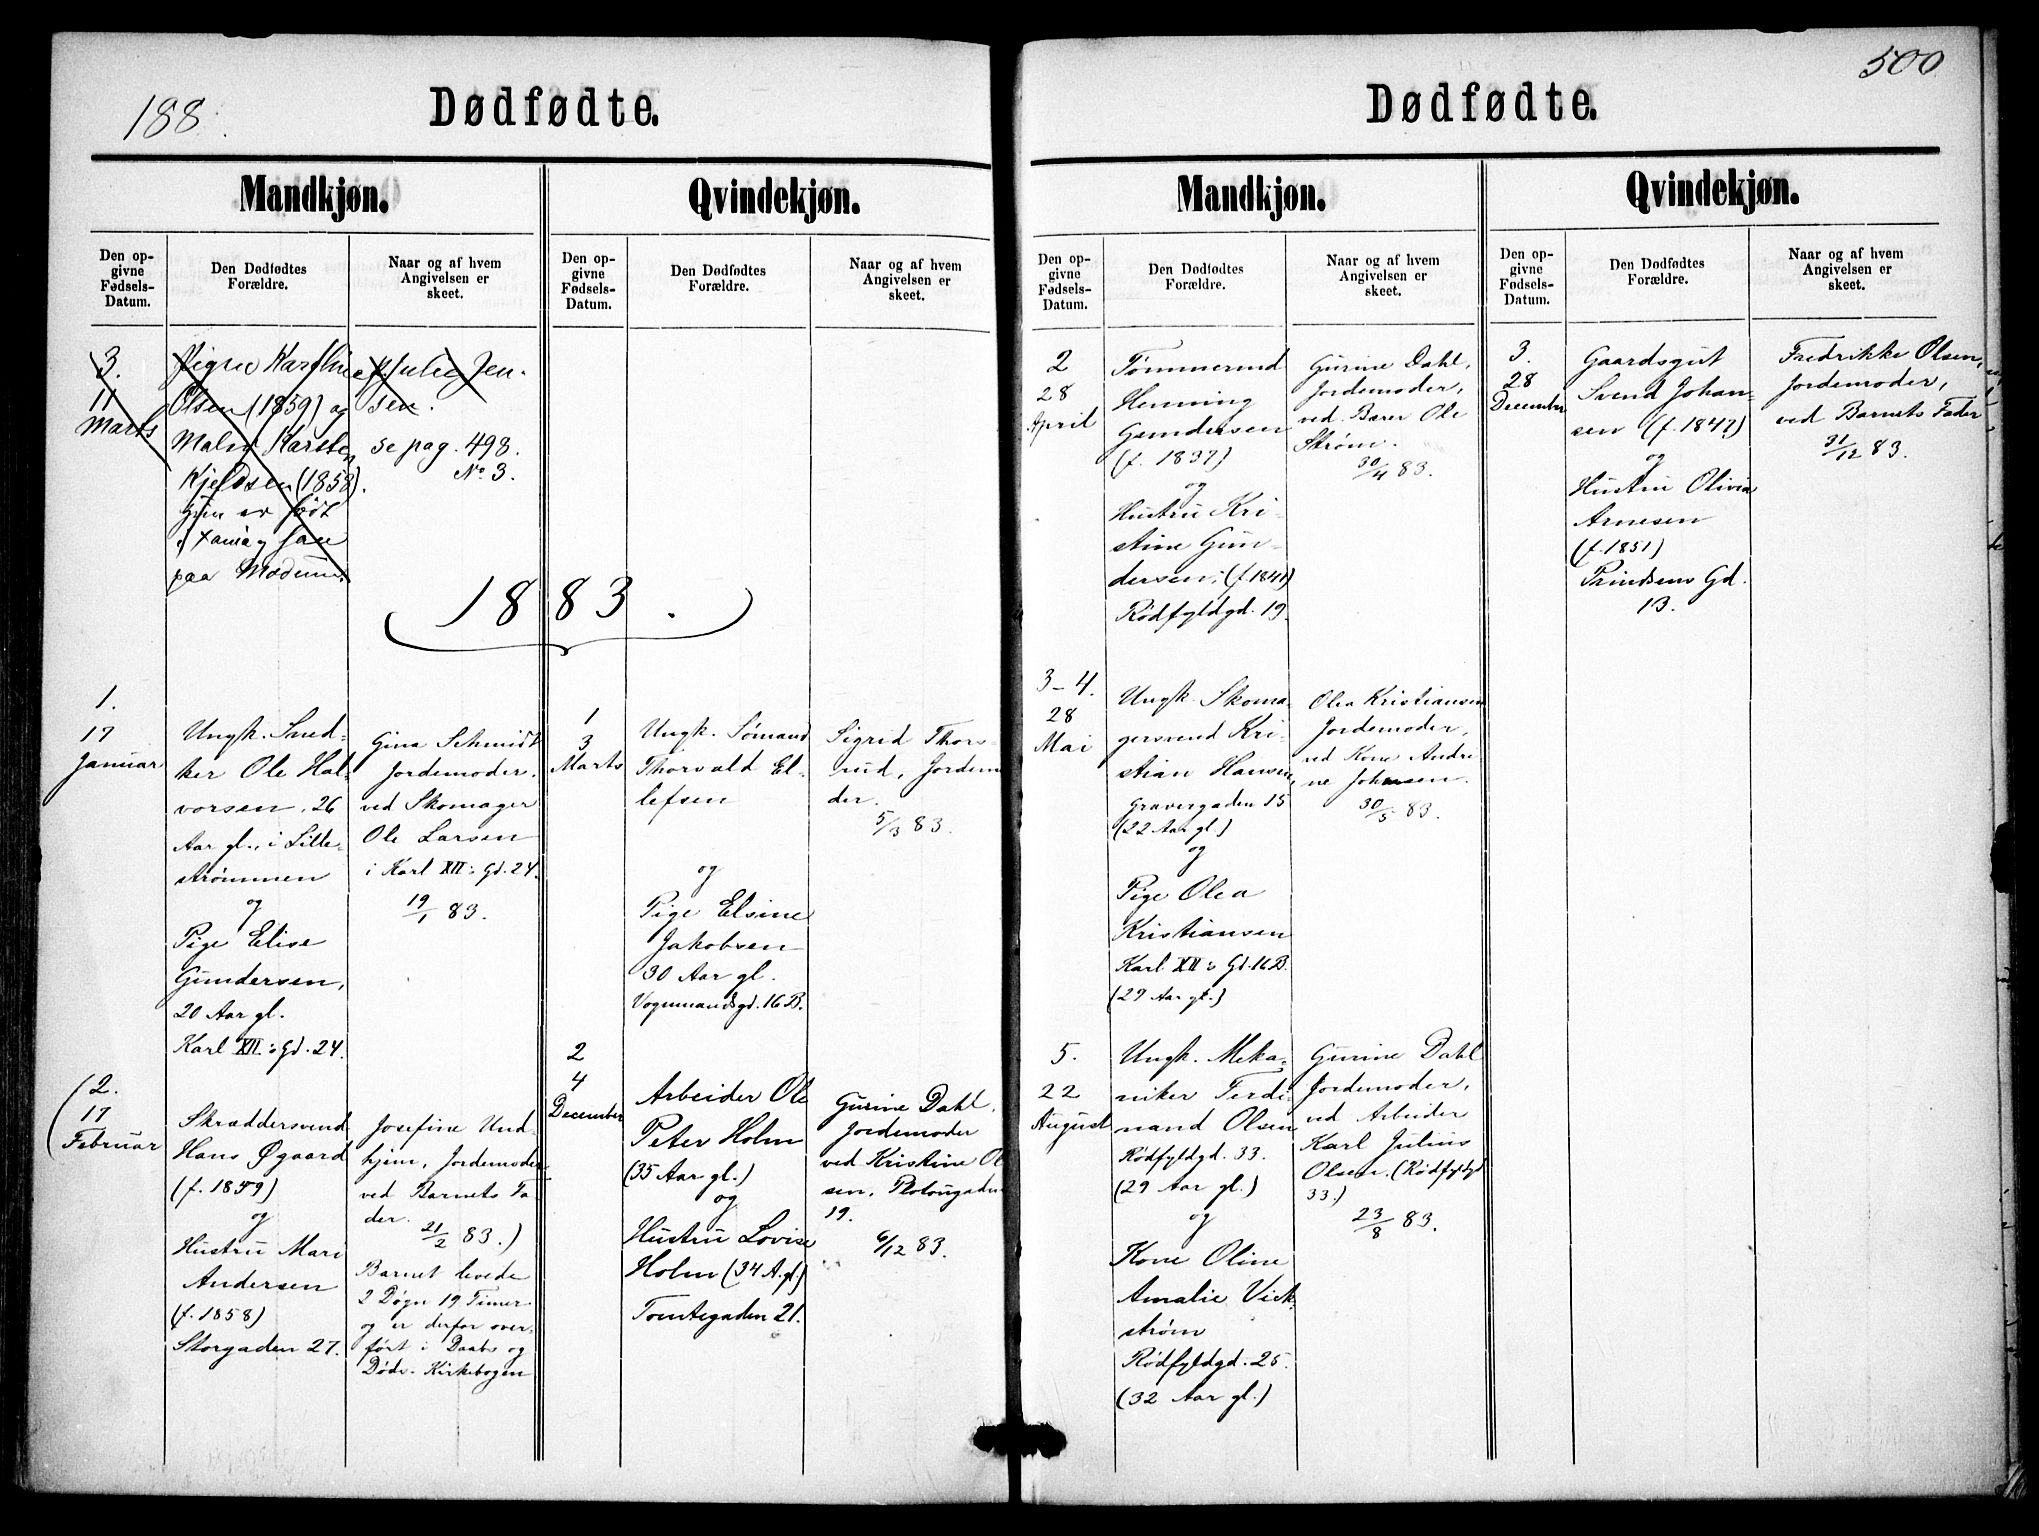 188.
Dødfødte.
Mandkjøn.
Den op-
givne
Fødsels-
Datum.
Den Dødfødtes
Forældre.
Naar og af hvem
Angivelsen er
skeet.
3.
11
Marts
Pigen Karoline
Olsen (1859) og
Maler Karsten
Kjeldsen (1858).
er født
paa Modum.
Julie Jen-
sen.
se pag. 498.
No 3.
1883.
1.
17
Januar
Ungk. Sned-
ker Ole Hal-
vorsen, 26
Aar gl., i Lille-
strømmen
og
Pige Elise
Gundersen,
20 Aar gl.
Karl XII.s Gd. 24.
Gina Schmidt
Jordemoder,
ved Skomager
Ole Larsen
i Karl XII.s Gd. 24.
19/1 83.
(2.
17
Februar
Skræddersvend
Hans Øgaard
(f. 1859)
og
Hustru Mari
Andersen
(f. 1858)
Storgaden 27.
Josefine Und-
hjem, Jordemoder
ved Barnets Fa-
der.
21/2 83.)
Barnet levede
2 Døgn 19 Timer
og er derfor over-
ført i Daabs og
Døds-Kirkebogen
Qvindekjøn.
Den op-
givne
Fødsels-
Datum.
Den Dødfødtes
Forældre.
Naar og af hvem
Angivelsen er
skeet.
1
3
Marts
Ungk. Sømand
Thorvald El-
lefsen
og
Pige Elsine
Jakobsen
30 Aar gl.
Vognmandsgd. 16 B.
Sigrid Thors-
rud, Jordemo
der.
5/3 83.
2
4
December
Arbeider Ole
Peter Holm
(35 Aar gl.)
og
Hustru Lovise
Holm (34 A. gl.)
Tomtegaden 21.
Gurine Dahl,
Jordemoder
ved Kristine Ol
sen,
19.
6/12 83.
500
Dødfødte.
Mandkjøn.
Den op-
givne
Fødsels-
Datum.
Den Dødfødtes
Forældre.
Naar og af hvem
Angivelsen er
skeet.
2
28
April
Tømmermd
Henning
Gundersen
(f. 1837)
og
Hustru Kri-
stine Gun-
dersen, (f. 1841)
Rødfyldgd. 19.
Gurine Dahl,
Jordemoder,
ved Ole
Strøm.
30/4 83.
3-4.
28
Mai
Ungk. Skoma-
gersvend Kri-
stian Hansen,
Gravergaden 15
(22 Aar gl.)
og
Pige Olea
Kristiansen
Karl XII.s Gd. 16 B.
(29 Aar gl.)
Olea Kristiansen
Jordemoder,
ved Kone Andri
ne Johansen.
30/5 83.
5.
22
August
Ungk. Meka-
niker Ferdi-
nand Olsen
Rødfyldgd. 33.
(29 Aar gl.)
og
Kone Oline
Amalie Vick-
strøm
Rødfyldgd. 25.
(32 Aar gl.)
Gurine Dahl
Jordemoder,
ved Arbeider
Karl Julius
Olsen. (Rødfyldgd
33.)
23/8 83.
Qvindekjøn.
Den op-
givne
Fødsels-
Datum.
Den Dødfødtes
Forældre.
Naar og af hvem
Angivelsen er
skeet.
3.
28
December
Gaardsgut
Svend Johan-
sen (f. 1847)
og
Hustru Olivia
Arnesen
(f. 1851)
Prindsens Gd.
13.
Fredrikke Olsen,
Jordemoder,
ved Barnets Fader
31/12 83.